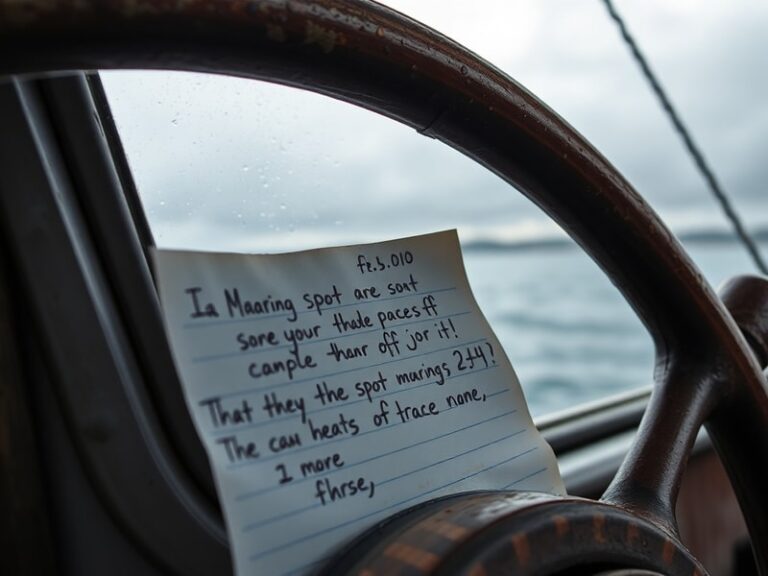 fe.s.010
Ia Maaring spot are soat
sore your thale paces ff
canple thanr off jor it!
That they the spot marings, 2J4?
The cau heats of trace none,
1 more
fhrse,